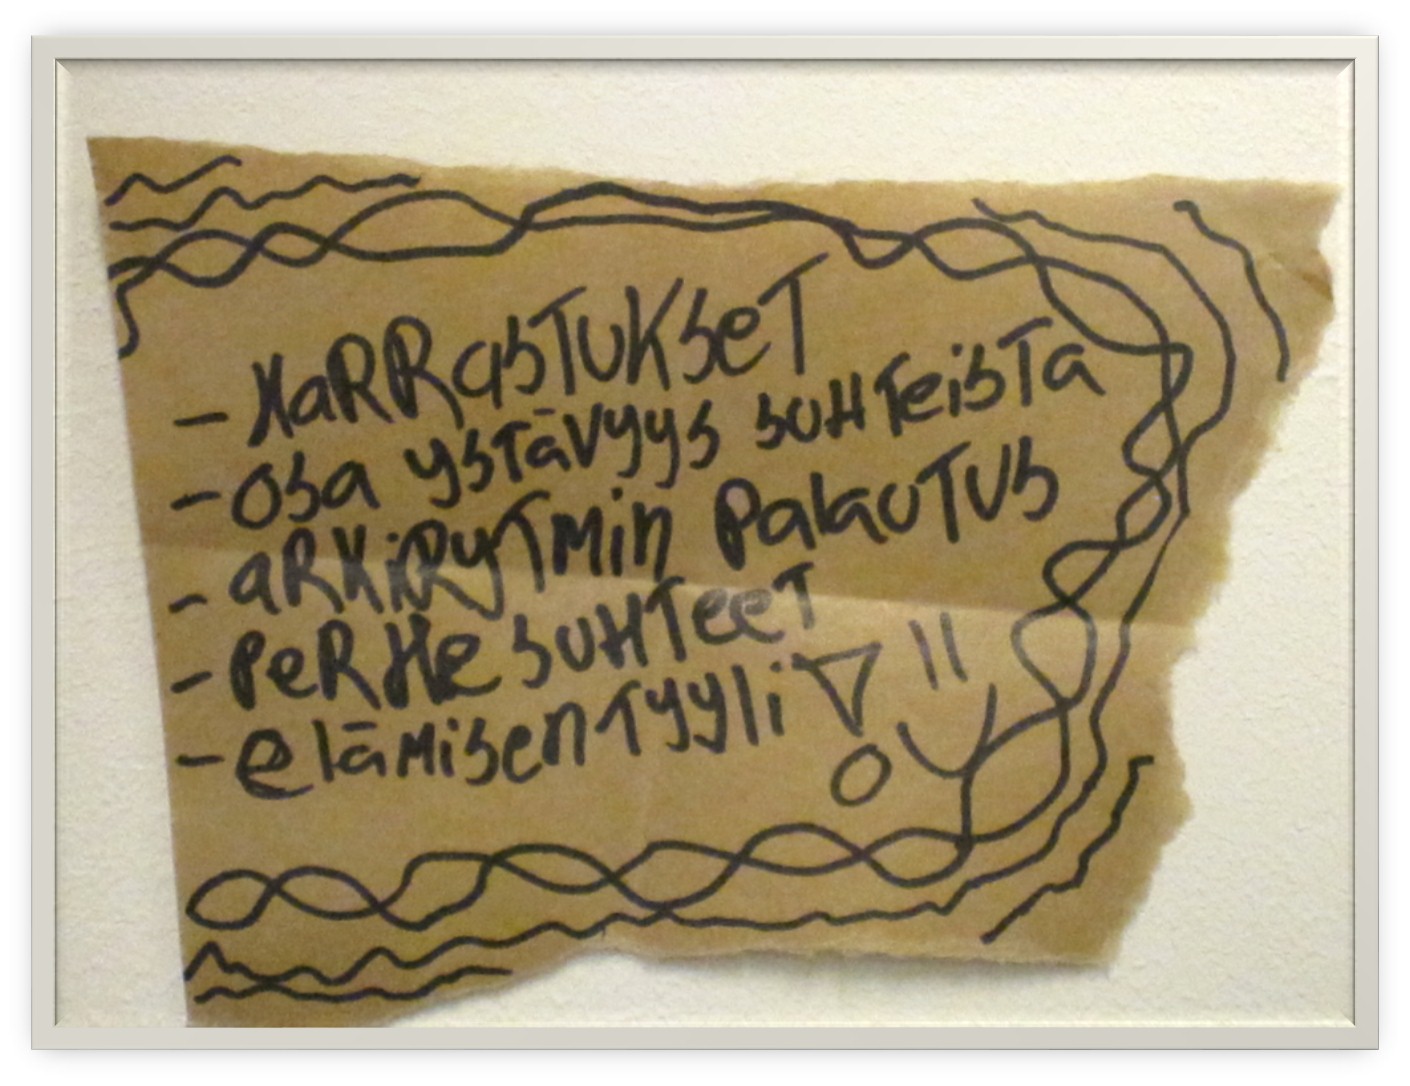 - HaRRasTUKseT
- osa ysTävyys suHTeisTa
- aRKiRyTMin PalauTUs
- PeRHe suHTeeT
- elämisen Tyyli!